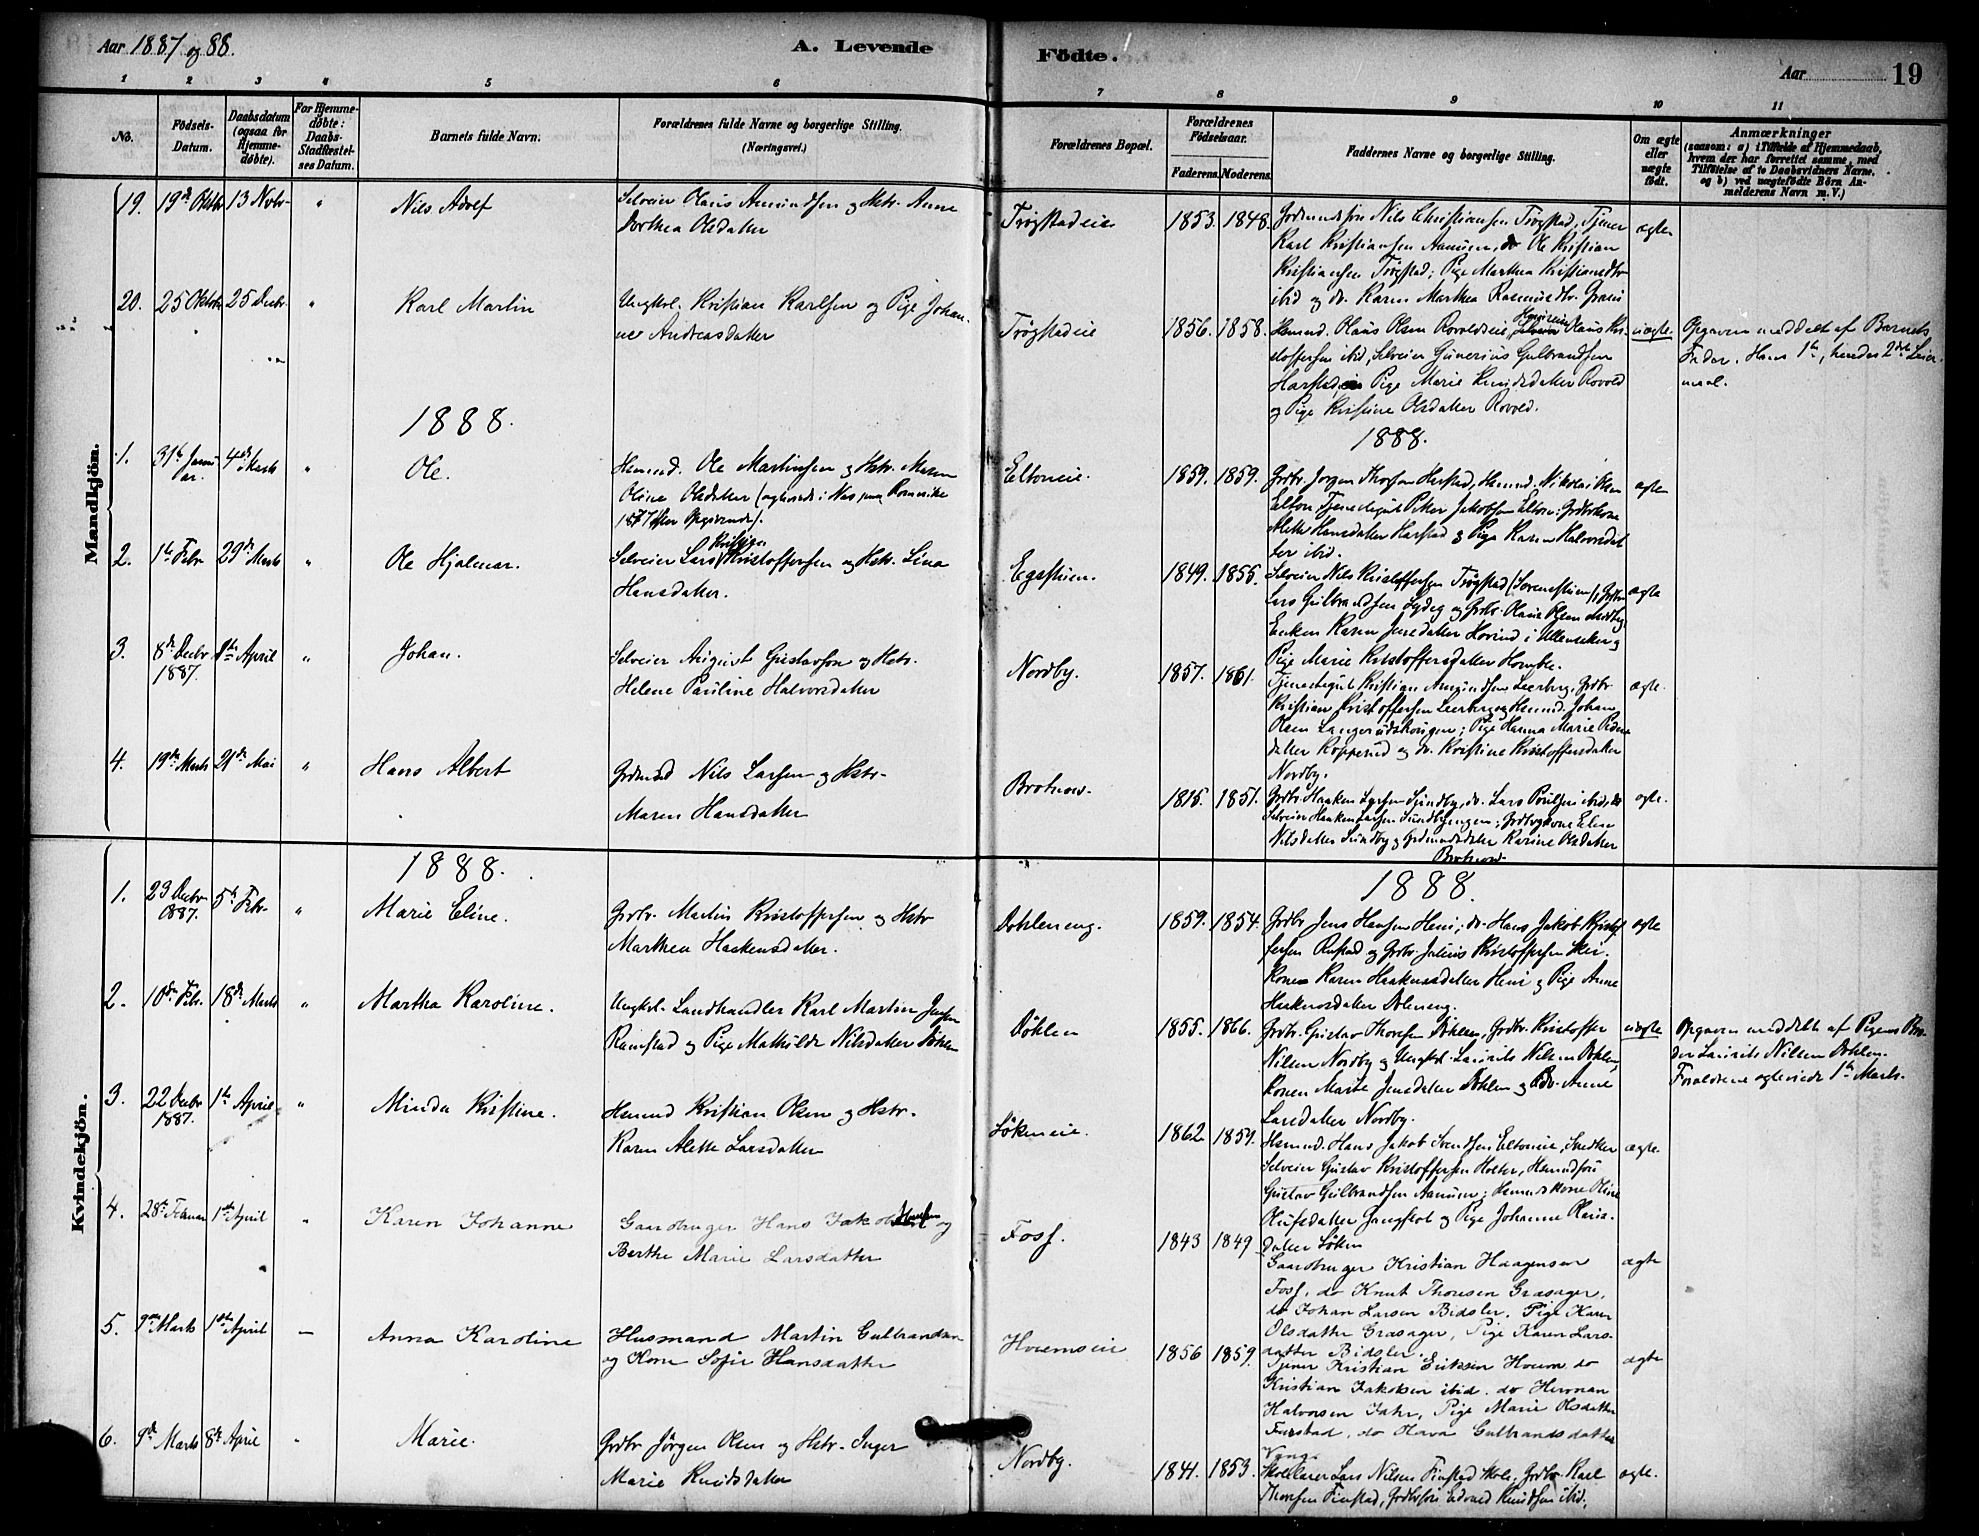 Aar 1887 og 88.
A. Levende
Födte.
Aar
19
1
2
3
4
5
6
7
8
9
10
11
No.
Födsels-
Datum.
Daabsdatum
(ogsaa for
Hjemme-
døbte).
For Hjemme-
døbte:
Daabs-
Stadfæstel-
ses Datum.
Barnets fulde Navn.
Forældrenes fulde Navne og borgerlige Stilling.
(Næringsvei.)
Forældrenes Bopæl.
Forældrenes
Födselsaar.
Faderens.
Moderens.
Faddernes Navne og borgerlige Stilling.
Om ægte
eller
uægte
födt.
Anmærkninger
(saasom: a) i Tilfælde af Hjemmedaab,
hvem der har forrettet samme, med
Tilföielse af to Daabsvidners Navne,
og b) ved uægtefödte Börn An-
melderens Navn m. V.)
Mandkjön.
19.
19de Oktbr
13 Novbr
Nils Adolf
Selveier Olaus Amundsen og Hstr. Anne
Dorthea Olsdatter
Trøgstadeie
1853.
1848.
Nils Christiansen Trøgstad, Tjener
Karl Kristiansen Aamien, do Ole Kristian
Kristiansen Trøgstad; Pige Marthea Kristiansdtr
ibid og do. Karen Marthea Rasmusdtr.
ægte
20.
25 Oktobr
25 Decbr
Karl Martin
Ungkrl. Kristian Karlsen og Pige Johan-
ne Andreasdatter
Trøgstadeie
1856.
1858.
Husmd. Olaus Olsen Rovoldeie, Selveier Olaus Kri-
stoffersen ibid, Selveier Gunerius Gulbrandsen
Harstad Pige Marie Knudsdatter Rovold
og Pige Kristine Olsdatter Rovold.
uægte.
Opgaven meddelt af Barnets
Fader. Hans 1te, hendes 2det Leier-
maal.
1888.
1888.
1.
31te Janu-
ar.
4de Marts
Ole.
Husmd. Ole Martinsen og Hstr. Maren
Oline Olsdatter (ægteviede i Nes paa Romerike
1877 efter Opgivende).
Eltoneie.
1859.
1859.
Grdbr. Jørgen Thorsen Harstad, Husmd. Nikolai Olsen
Elton, Tjenestegut Peter Jakobsen Elton; Grdbrkone
Alette Hansdatter Harstad og Pige Karen Halvorsdat-
ter ibid.
ægte
2.
1te Febr
29de Marts
Ole Hjalmar.
Selveier Lars Kristian Kristoffersen og Hstr. Lina
Hansdatter.
Egstuen.
1849.
1855.
Selveier Nils Kristoffersen Trøgstad (Sorenstuen), Grdbr
Lars Gulbrandsen Lydeg og Grdbr. Olaus Olsen Nordby
Enken Karen Jensdatter Hovind i Ullensaker og
Pige Marie Kristoffersdatter Homble.
ægte
3.
8de Decbr
1887.
1te April
Johan.
Selveier August Gustavson og Hstr.
Helene Pauline Halvorsdatter
Nordby.
1857.
1861.
Tjenestegut Kristian Amundsen Leerberg, Grdbr
Kristian Kristoffersen Leerberg og Husmd. Johan
Olsen Langerudshaugen; Pige Hanna Marie Peders-
datter Kopperud og do. Kristine Kristoffersdatter
Nordby.
ægte.
4.
19de Marts
21de Mai
Hans Albert
Grdmand Nils Larsen og Hstr.
Maren Hansdatter
Brotnow.
1815.
1851.
Grdbr. Haaken Larsen Sundby, do. Lars Poulsen ibid, do
Selveier Haaken Larsen Sundbyengen; Grdbrgkone Eline
Nilsdatter Sundby og Grdmandsdatter Karine Olsdatter
Brotnow
ægte.
Kvindekjön.
1888.
1888.
1.
23 Decbr
1887.
5te Febr
Marie Eline.
Grdbr. Martin Kristoffersen og Hstr
Marthea Haakensdatter.
Dohleneng.
1859.
1854.
Grdbr Jens Hansen Heni; do. Hans Jakob Kristof-
fersen Rustad og Grdbr. Julius Kristoffersen Skei.
Kone Karen Haakensdatter Heni og Pige Anne
Haakensdatter Doleneng.
ægte
2.
10de Feb.
18de Marts
Martha Karoline.
Ungkrl. Landhandler Karl Martin Jensen
Ramstad og Pige Mathilde Nilsdatter Döhlen
Döhlen
1855.
1866.
Grdbr. Gustav Thorsen Döhlen, Grdbr. Kristoffer
Nilsen Nordby og Ungkrl. Laurits Nilsen Dohlen,
Konen Marte Jensdatter Dohlen og do. Anne
Larsdatter Nordby.
uægte
Opgaven meddelt af Pigens Bro-
der Laurits Nilsen Dohlen.
Forældrene ægteviede 1te Marts.
3.
22 Decbr
1887.
1te April
Minda Kristine.
Husmd Kristian Olsen og Hstr.
Karen Alette Larsdatter
Løkeneie.
1862
1859.
Husmd. Hans Jakob Svendsen Eltoneie, Snedker
Selveier Gustav Kristoffersen Holter, Husmdsøn
Gustav Gulbrandsen Aamien; Husmdskone Oline
Olufsdatter og Pige Johanne Olaus-
datter Løken
ægte.
4.
28de Februar
1ste April
Karen Johanne
Gaardbruger Hans Jakob Hansen og
Berthe Marie Larsdatter
Foss.
1843
1849
Gaardbruger Kristian Haagensen
Foss, do Knut Thoresen Grasager,
do Johan Larsen Bidsler. Pige Karen
Olsdatter Grasager, Pige Karen Lars-
datter Bidsler.
ægte
5.
9de Marts
1ste April
Anna Karoline
Husmand Martin Gulbrandsen
og Kone Sofie Hansdatter
Hovemseie
1856
1859.
Tjener Kristian Eriksen Hovem do
Kristian Jakobsen ibid. do Herman
Halvorsen Jahr, Pige Marie Olsdatter
Furstad, do Hava Gulbrandsdatter
ægte
6.
9de Marts
8de April
Marie.
Grdbr Jørgen Olsen og Hstr. Inger
Marie Knudsdatter
Nordby.
1841.
1853.
Skolelærer Lars Nilsen Finstad Skole, Grdbr. Karl
Thorsen Finstad, Grdbrsøn Edvard Knudsen ibid,
ægte.